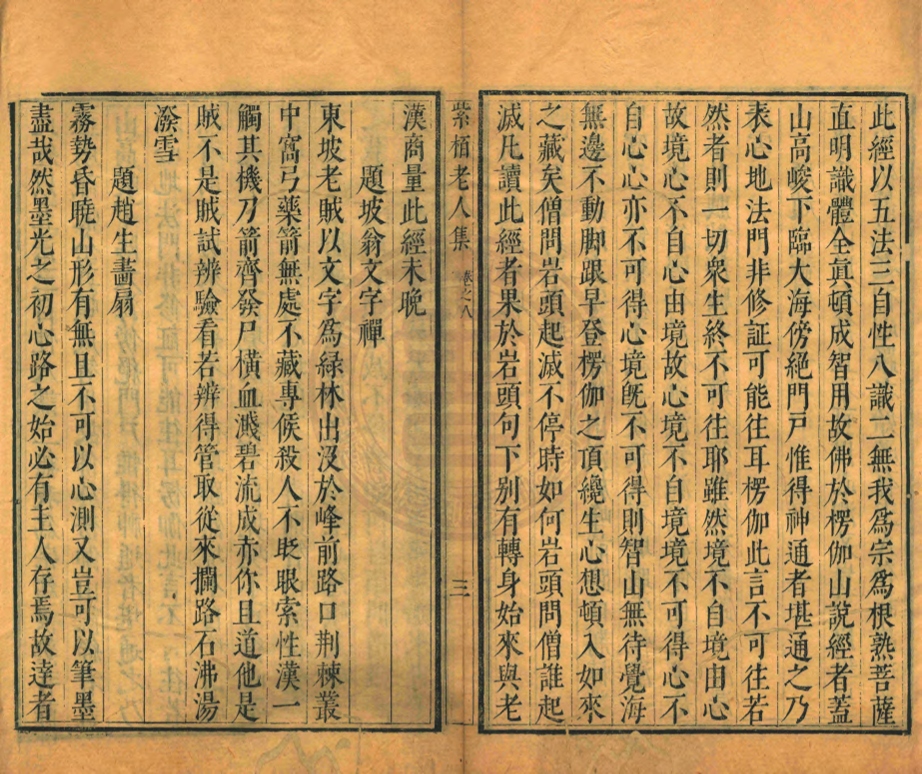 此經以五法三自性八識二無我爲宗爲根熟菩薩
直明識體全眞頓成智用故佛於楞伽山說經者蓋
山高峻下臨大海傍絶門戸惟得神通者堪通之乃
表心地法門非修証可能往耳楞伽此言不可往若
然者則一切衆生終不可往耶雖然境不自境由心
故境心不自心由境故心境不自境境不可得心不
自心心亦不可得心境旣不可得則智山無待覺海
無邊不動脚跟早登楞伽之頂纔生心想頓入如來
之藏矣僧問岩頭起滅不停時如何岩頭問僧誰起
滅凡讀此經者果於岩頭句下别有轉身始來與老
紫栢老人集 卷之八 三
漢商量此經未晩
題坡翁文字禪
東坡老賊以文字爲緑林出没於峰前路口荆棘叢
中窩弓藥箭無處不藏專候殺人不眨眼索性漢一
觸其機刀箭齊發尸橫血濺碧流成赤你且道他是
賊不是賊試辨驗看若辨得管取從來攔路石沸湯
潑雪
題趙生畵扇
霧勢昏曉山形有無且不可以心測又豈可以筆墨
盡哉然墨光之初心路之始必有主人存焉故達者